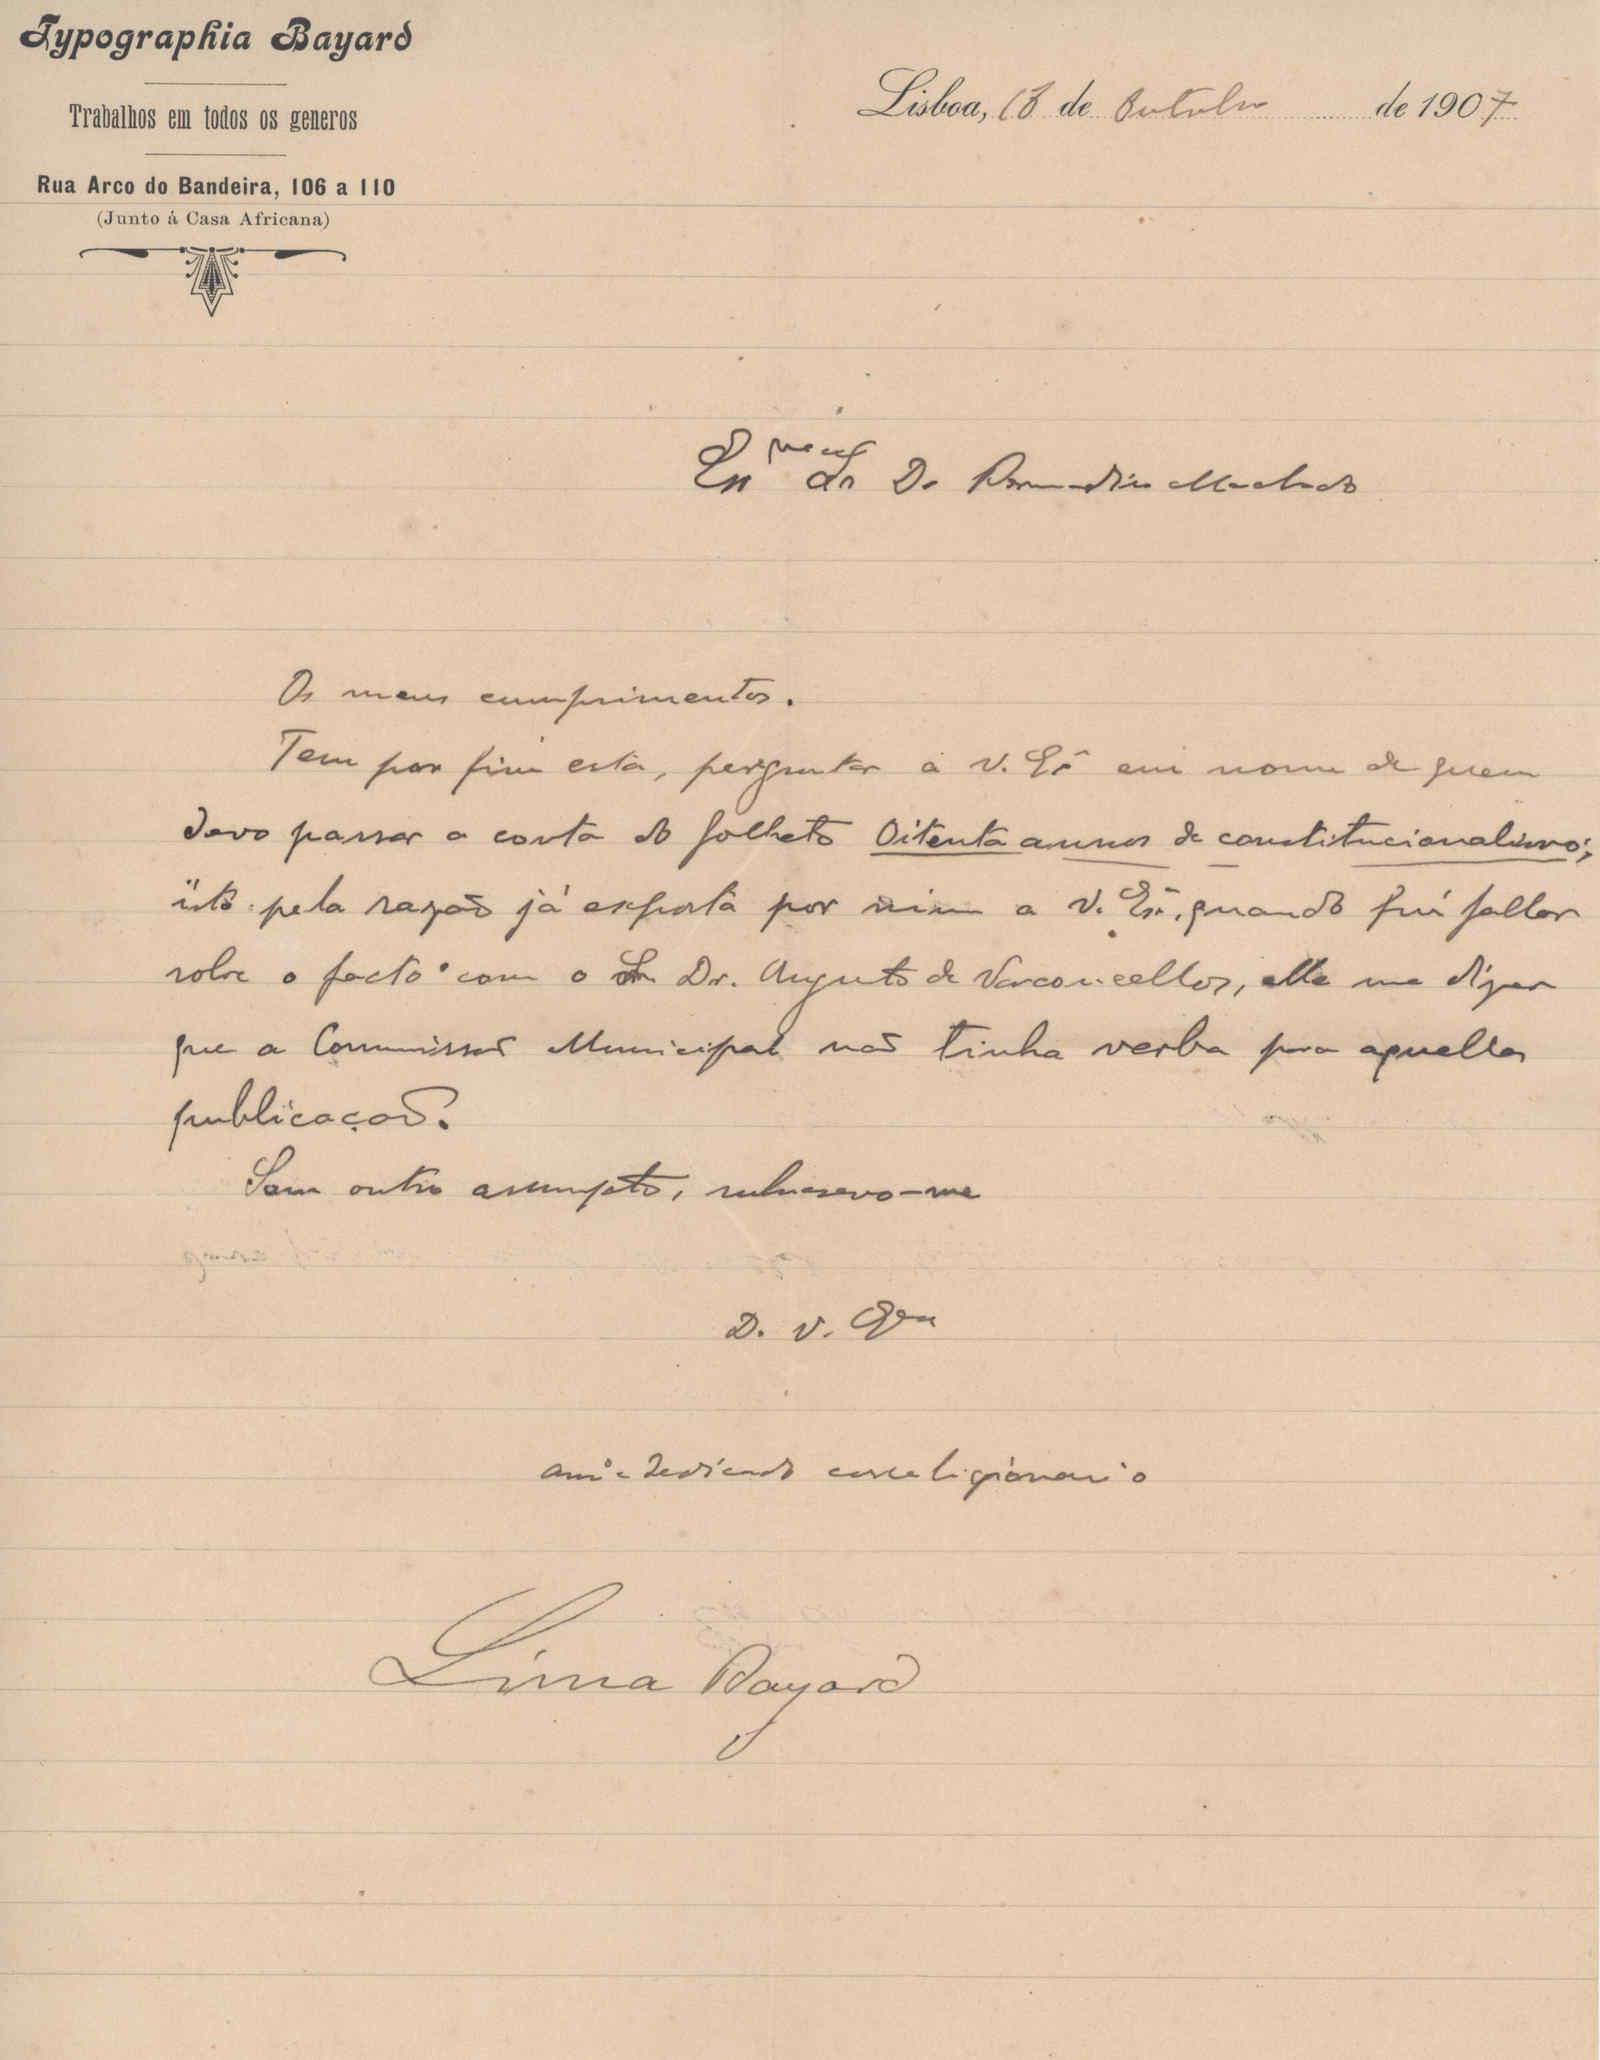 Typographia Bayard
Trabalhos em todos os generos
Rua Arco do Bandeira, 106 a 110
(Junto á Casa Africana)
Lisboa, 18 de Outubro de 1907
Exmo Snr Dr Bernardino Machado
Os meus cumprimentos.
Tem por fim esta, perguntar a V. Exª em nome de quem
devo passar a conta do folheto Oitenta annos de constitucionalismo;
isto pela razão já exposta por mim a V. Exª, quando fui fallar
sobre o facto com o Sr Dr. Augusto de Vasconcellos, elle me dizer
que a Commissão Municipal não tinha verba para aquella
publicação.
Sem outro assumpto, subscrevo-me
D. V. Exa
amº e dedicado correligionario
Lima Bayard